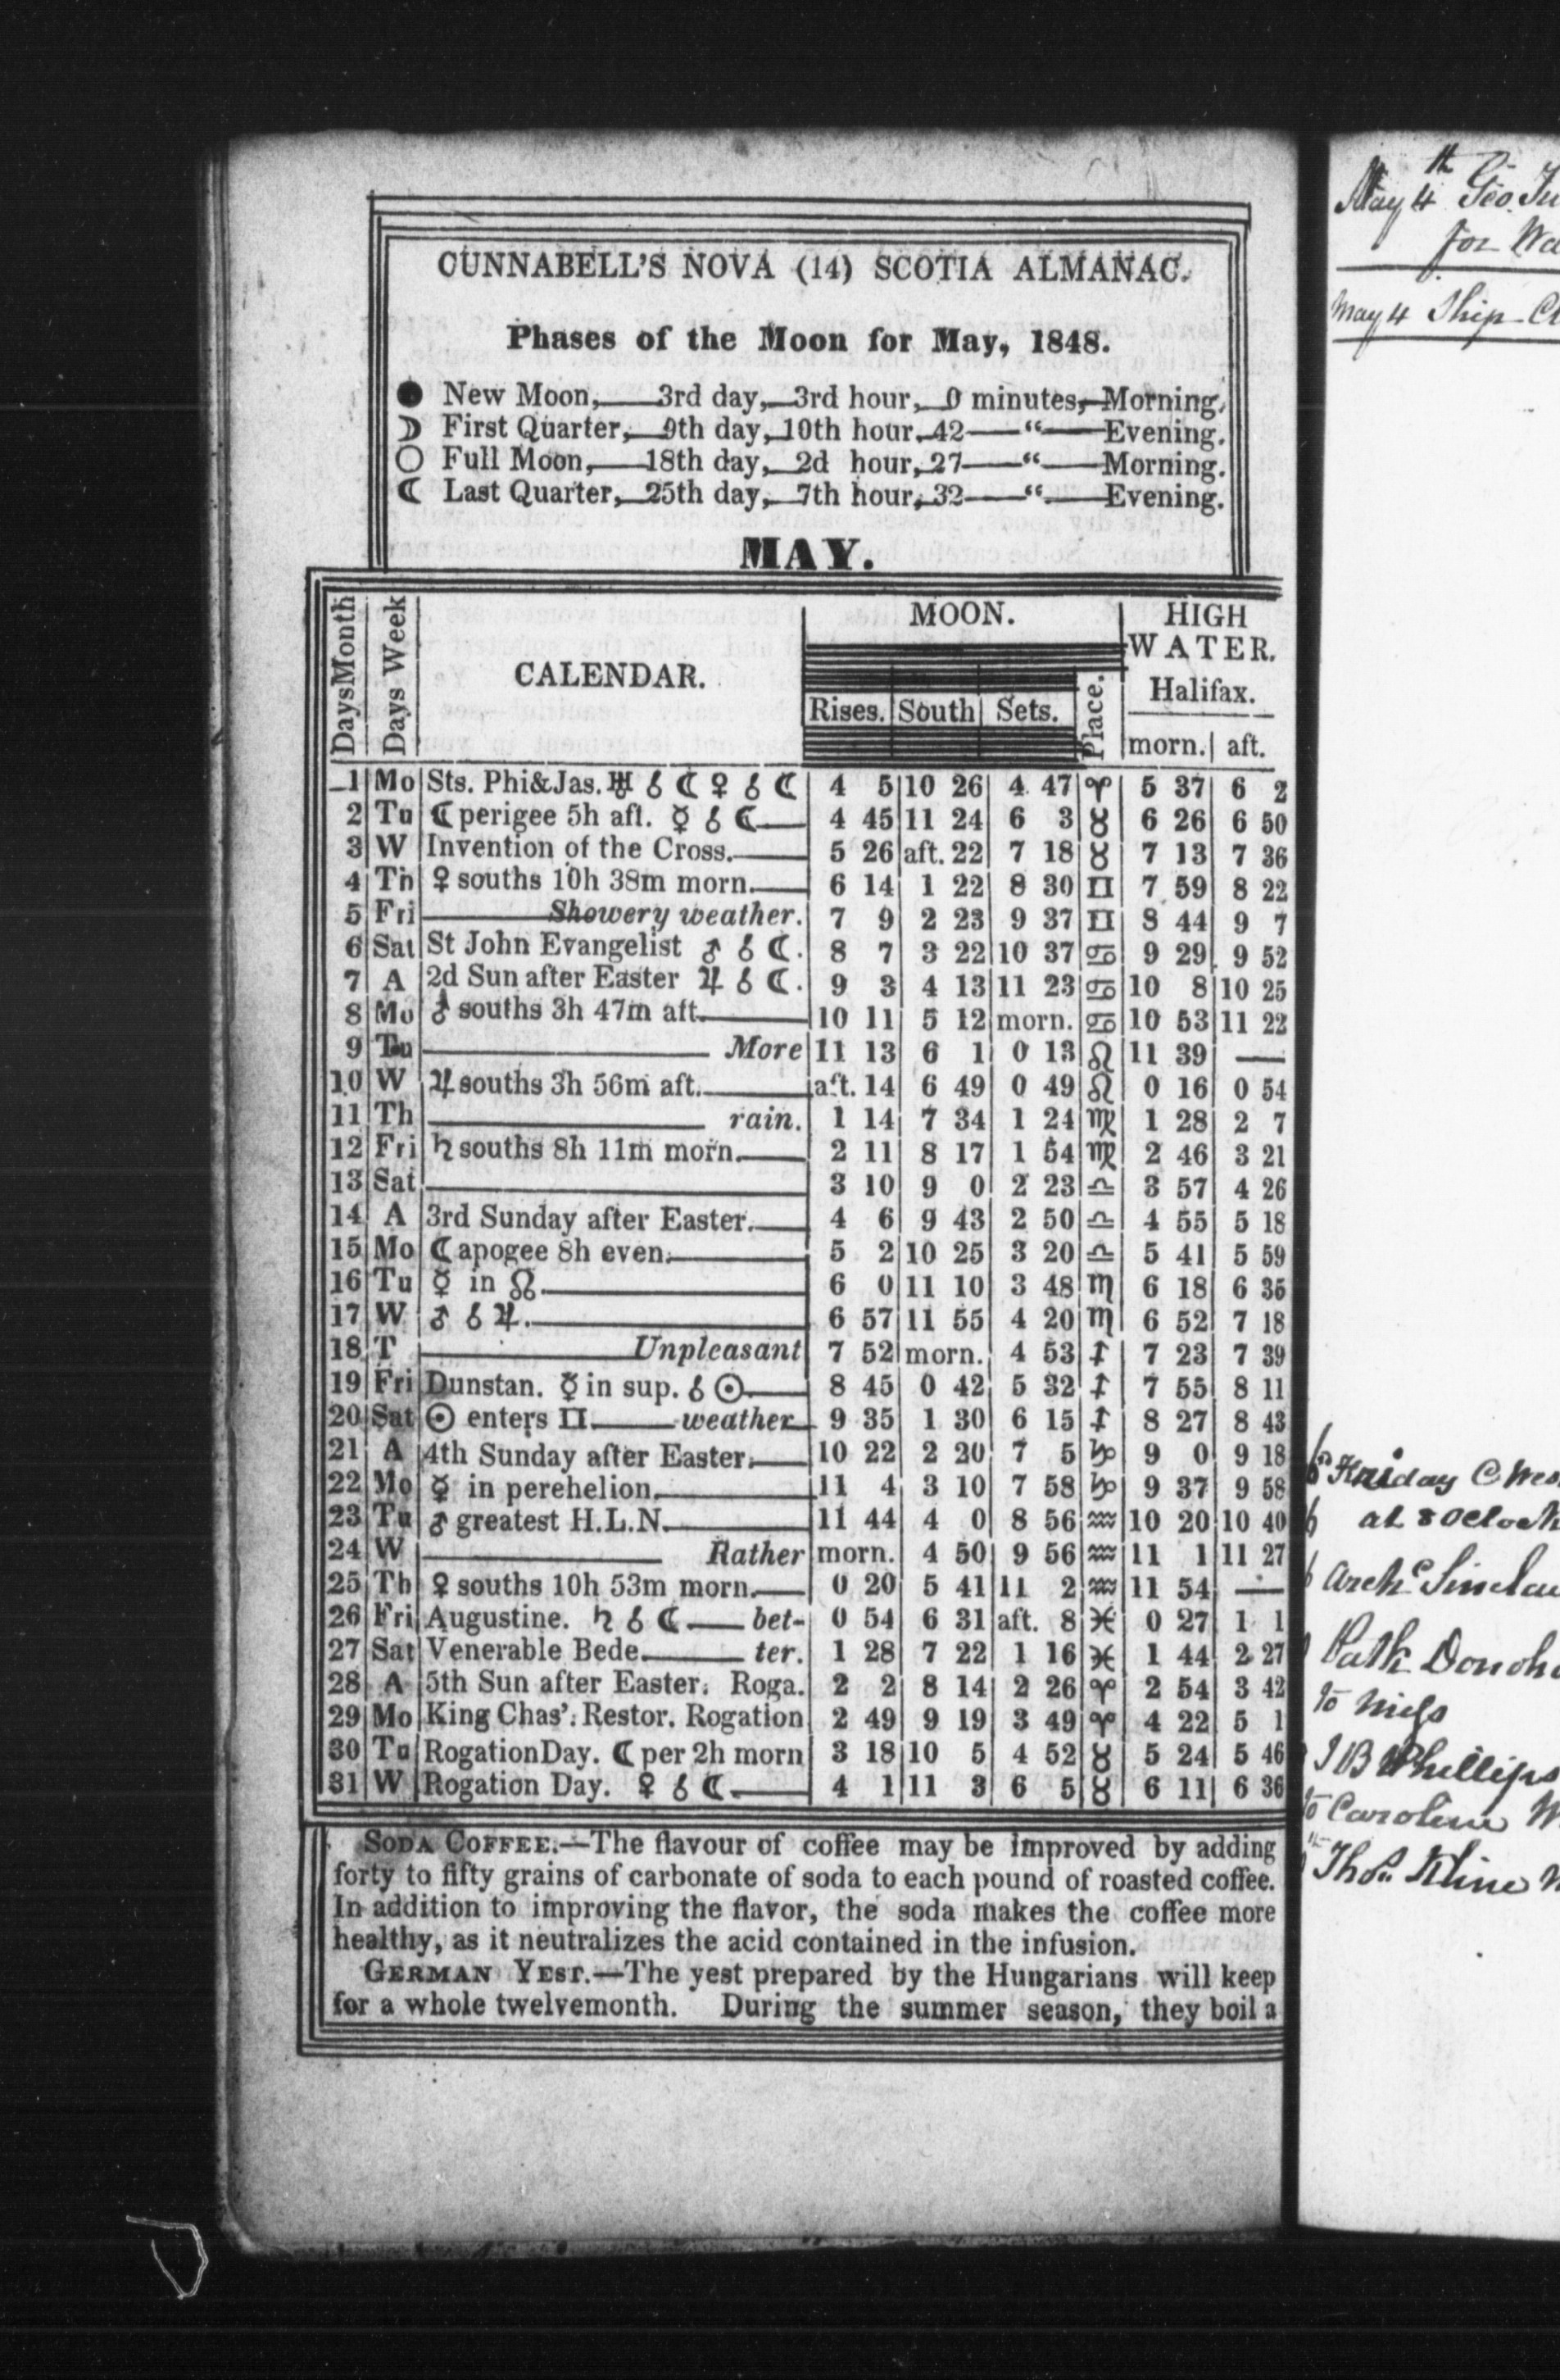 CUNNABELL'S NOVA (14) SCOTIA ALMANAC.
Phases of the Moon for May, 1848.
● New Moon,——3rd day,—3rd hour,—0 minutes,—Morning.
☽ First Quarter,—9th day,—10th hour,—42——“——Evening.
○ Full Moon,——18th day,—2d hour,—27——“——Morning.
☾ Last Quarter,—25th day,—7th hour,—32——“——Evening.
MAY.
DaysMonth | Days Week | CALENDAR. | MOON. | HIGH WATER.
Rises. | South | Sets. | Place. | Halifax.
morn. | aft.
1 | Mo | Sts. Phi&Jas. ♅ ☌ ☾ ♀ ☌ ☾ | 4 5 | 10 26 | 4 47 | ♈ | 5 37 | 6 2
2 | Tu | ☾ perigee 5h aft. ☿ ☌ ☾— | 4 45 | 11 24 | 6 3 | ♉ | 6 26 | 6 50
3 | W | Invention of the Cross.— | 5 26 | aft. 22 | 7 18 | ♉ | 7 13 | 7 36
4 | Th | ♀ souths 10h 38m morn.— | 6 14 | 1 22 | 8 30 | ♊ | 7 59 | 8 22
5 | Fri | ——Showery weather. | 7 9 | 2 23 | 9 37 | ♊ | 8 44 | 9 7
6 | Sat | St John Evangelist ♂ ☌ ☾. | 8 7 | 3 22 | 10 37 | ♋ | 9 29 | 9 52
7 | A | 2d Sun after Easter ♃ ☌ ☾. | 9 3 | 4 13 | 11 23 | ♋ | 10 8 | 10 25
8 | Mo | ♂ souths 3h 47m aft.— | 10 11 | 5 12 | morn. | ♋ | 10 53 | 11 22
9 | Tu | —— More | 11 13 | 6 1 | 0 13 | ♌ | 11 39 | —
10 | W | ♃ souths 3h 56m aft.— | aft. 14 | 6 49 | 0 49 | ♌ | 0 16 | 0 54
11 | Th | —— rain. | 1 14 | 7 34 | 1 24 | ♍ | 1 28 | 2 7
12 | Fri | ♄ souths 8h 11m morn.— | 2 11 | 8 17 | 1 54 | ♍ | 2 46 | 3 21
13 | Sat | —— | 3 10 | 9 0 | 2 23 | ♎ | 3 57 | 4 26
14 | A | 3rd Sunday after Easter.— | 4 6 | 9 43 | 2 50 | ♎ | 4 55 | 5 18
15 | Mo | ☾ apogee 8h even.— | 5 2 | 10 25 | 3 20 | ♎ | 5 41 | 5 59
16 | Tu | ☿ in ☊.— | 6 0 | 11 10 | 3 48 | ♏ | 6 18 | 6 35
17 | W | ♂ ☌ ♃.— | 6 57 | 11 55 | 4 20 | ♏ | 6 52 | 7 18
18 | T | ——Unpleasant | 7 52 | morn. | 4 53 | ♐ | 7 23 | 7 39
19 | Fri | Dunstan. ☿ in sup. ☌ ☉.— | 8 45 | 0 42 | 5 32 | ♐ | 7 55 | 8 11
20 | Sat | ☉ enters ♊.——weather | 9 35 | 1 30 | 6 15 | ♐ | 8 27 | 8 43
21 | A | 4th Sunday after Easter.— | 10 22 | 2 20 | 7 5 | ♑ | 9 0 | 9 18
22 | Mo | ☿ in perehelion.— | 11 4 | 3 10 | 7 58 | ♑ | 9 37 | 9 58
23 | Tu | ♂ greatest H.L.N.— | 11 44 | 4 0 | 8 56 | ♒ | 10 20 | 10 40
24 | W | —— Rather | morn. | 4 50 | 9 56 | ♒ | 11 1 | 11 27
25 | Th | ♀ souths 10h 53m morn.— | 0 20 | 5 41 | 11 2 | ♒ | 11 54 | —
26 | Fri | Augustine. ♄ ☌ ☾.— bet- | 0 54 | 6 31 | aft. 8 | ♓ | 0 27 | 1 1
27 | Sat | Venerable Bede.—— ter. | 1 28 | 7 22 | 1 16 | ♓ | 1 44 | 2 27
28 | A | 5th Sun after Easter. Roga. | 2 2 | 8 14 | 2 26 | ♈ | 2 54 | 3 42
29 | Mo | King Chas'. Restor. Rogation | 2 49 | 9 19 | 3 49 | ♈ | 4 22 | 5 1
30 | Tu | RogationDay. ☾ per 2h morn | 3 18 | 10 5 | 4 52 | ♉ | 5 24 | 5 46
31 | W | Rogation Day. ♀ ☌ ☾.— | 4 1 | 11 3 | 6 5 | ♉ | 6 11 | 6 36
SODA COFFEE.—The flavour of coffee may be improved by adding
forty to fifty grains of carbonate of soda to each pound of roasted coffee.
In addition to improving the flavor, the soda makes the coffee more
healthy, as it neutralizes the acid contained in the infusion.
GERMAN YEST.—The yest prepared by the Hungarians will keep
for a whole twelvemonth. During the summer season, they boil a
May 4th Geo
for
May 4 Ship
Friday C
at 8 OClock
Archd Sinclair
Patk
to
J B Phillips
to Caroline
Thos Kline